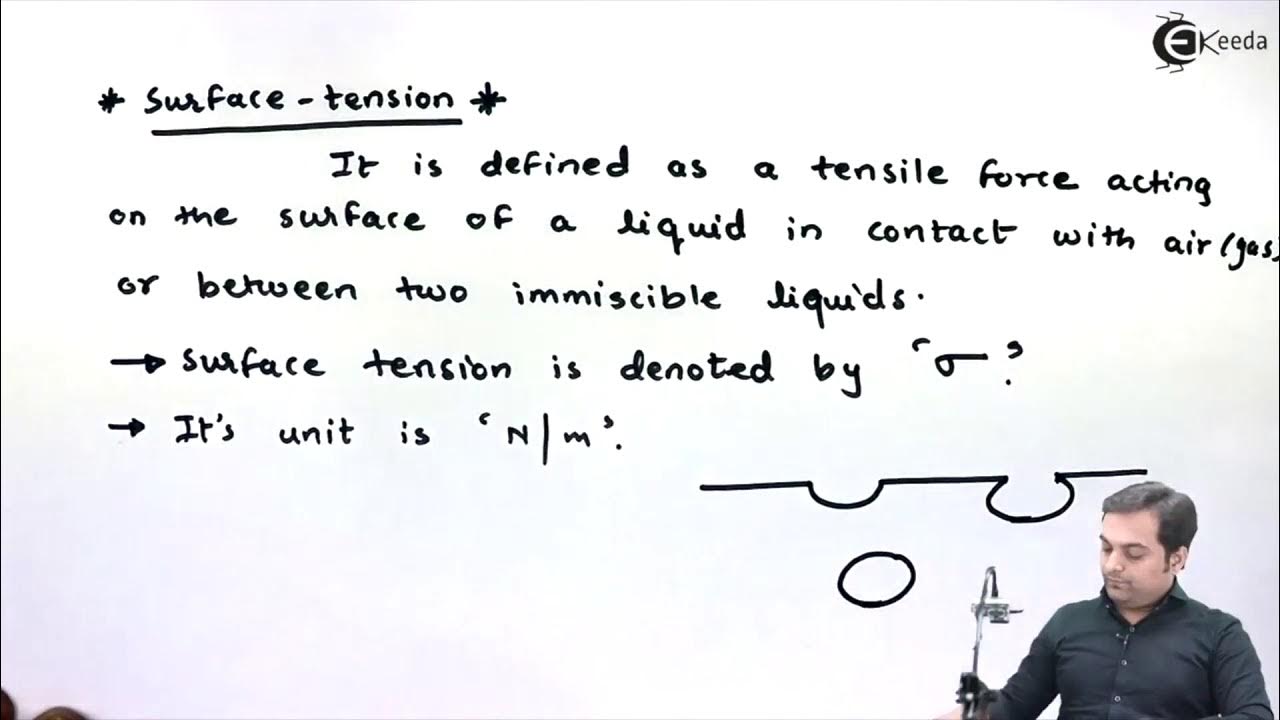 EKeeda
* Surface - tension *
It is defined as a tensile force acting
on the surface of a liquid in contact with air (gas)
or between two immiscible liquids.
→ Surface tension is denoted by 'σ'.
→ It's unit is 'N/m'.